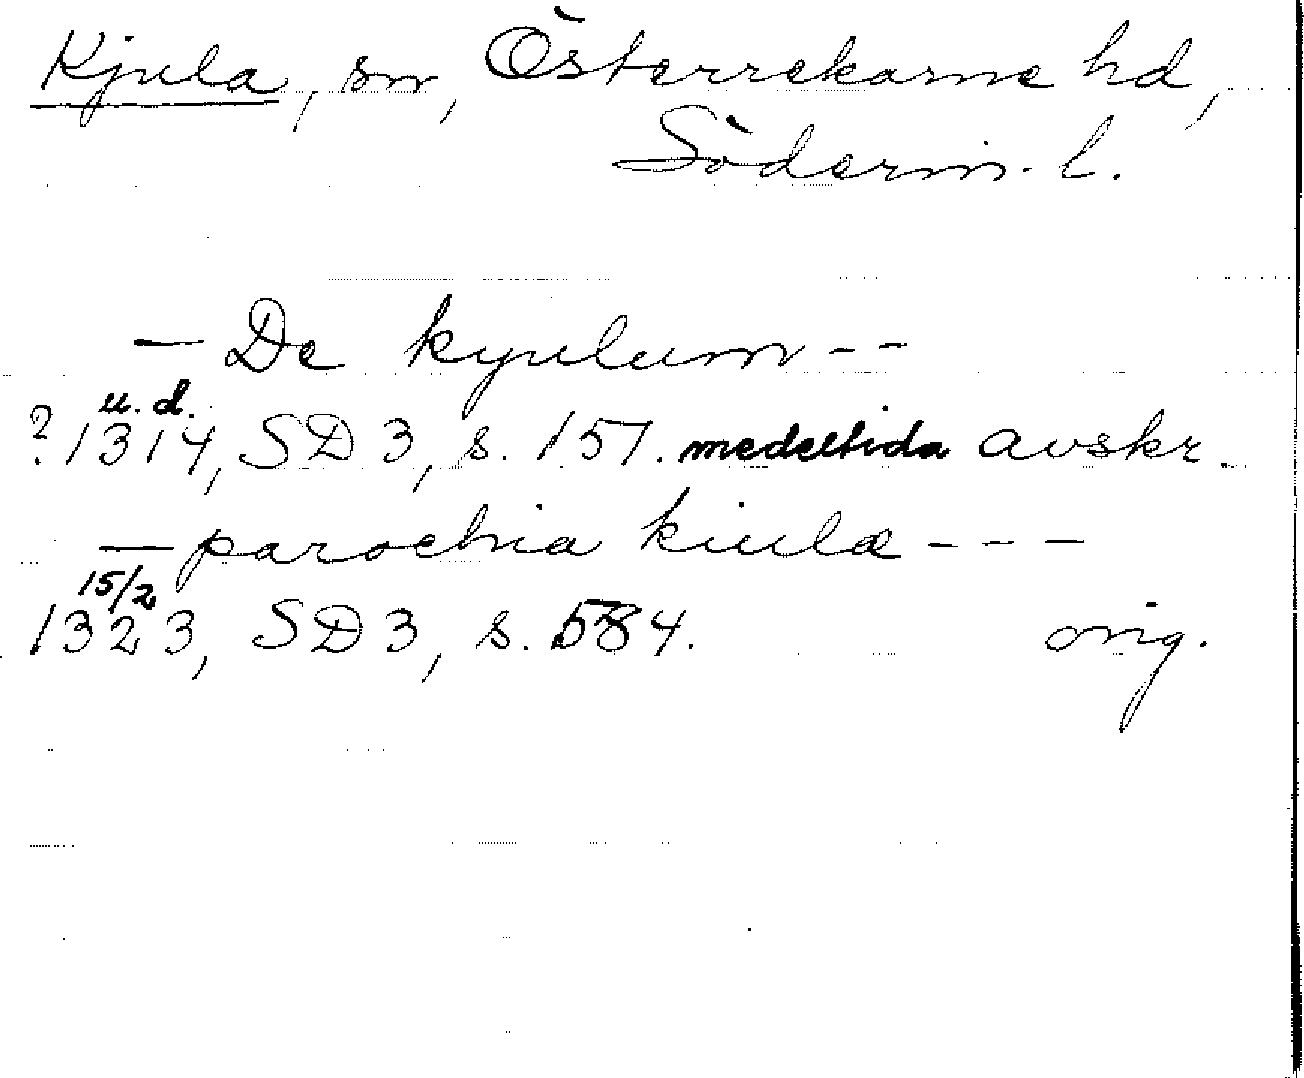 Kjula, sn, Österrekarne hd,
Söderm. l.
— De kyulum - -
u. d.
? 1314, SD 3, s. 157. medeltida avskr.
— parochia kiula - - -
15/2
1323, SD 3, s. 584. orig.